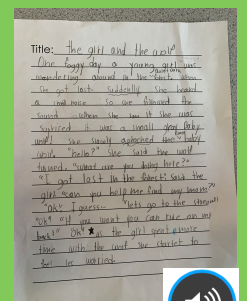 Title: the girl and the wolf
One foggy day a young girl was
wandering around in the when
she got lost. Suddenly She heard
a noise. So she followed the
sound. when She saw it She was
it was a small gray baby
wolf. She slowly the
wolf. "hello?" She said the wolf
turned. "what are you doing here?"
"I got lost in the forest" said the
girl "can you help me find my mom?"
"Ok" I guess... "lets go to the stream"
"Ok" "if you want you can ride on my
back!" "Ok" as the girl spent more
time with the wolf she started to
feel worried.